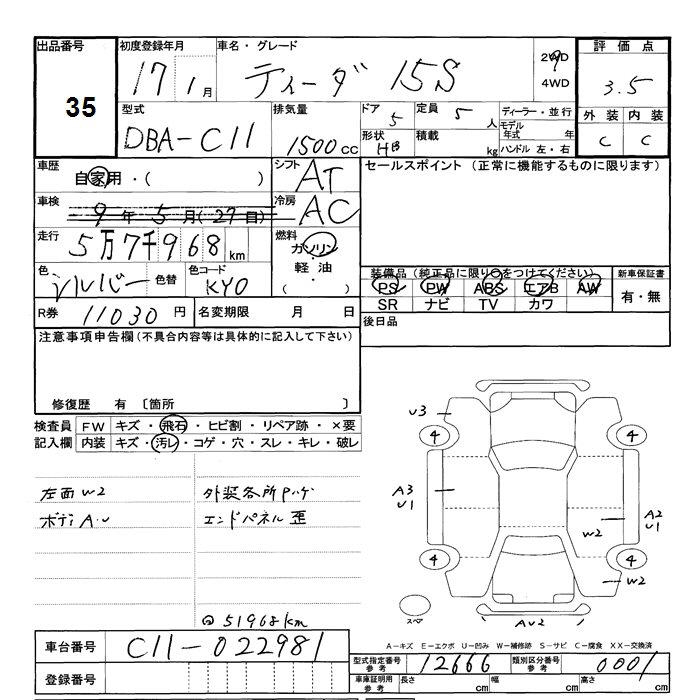 出品番号 初度登録年月 車名・グレード 評価点
35 17 1月 ティーダ 15S 2WD 4WD 3.5
型式 排気量 ドア 5 定員 5 人 ディーラー・並行 外装 内装
DBA-C11 1500 CC 形状 HB 積載 kg モデル年式 年 ハンドル 左・右 C C
車歴 自家用・( ) シフト AT セールスポイント (正常に機能するものに限ります)
車検 9年5月(27日) 冷房 AC
走行 5万7千968km 燃料 ガソリン・軽油・( )
色 シルバー 色替 色コード KY0
装備品(純正品に限り○をつけてください) 新車保証書
PS PW ABS エアB AW 有・無
SR ナビ TV カワ
R券 11030円 名変期限 月 日 後日品
注意事項申告欄(不具合内容等は具体的に記入して下さい)
修復歴 有 〔箇所 〕
検査員 FW キズ・飛石・ヒビ割・リペア跡・×要
記入欄 内装 キズ・汚レ・コゲ・穴・スレ・キレ・破レ
左面W2 外装各所Pハゲ
ボディA・U エンドパネル歪
@51968km
U3
4 4
A3 U1
A2 U1
W2
4 4
W2
スペ
AU2
A-キズ E-エクボ U-凹み W-補修跡 S-サビ C-腐食 XX-交換済
車台番号 C11-022981 型式指定番号 参考 12666 類別区分番号 参考 0001
登録番号 車庫証明用 参考 長さ cm 幅 cm 高さ cm